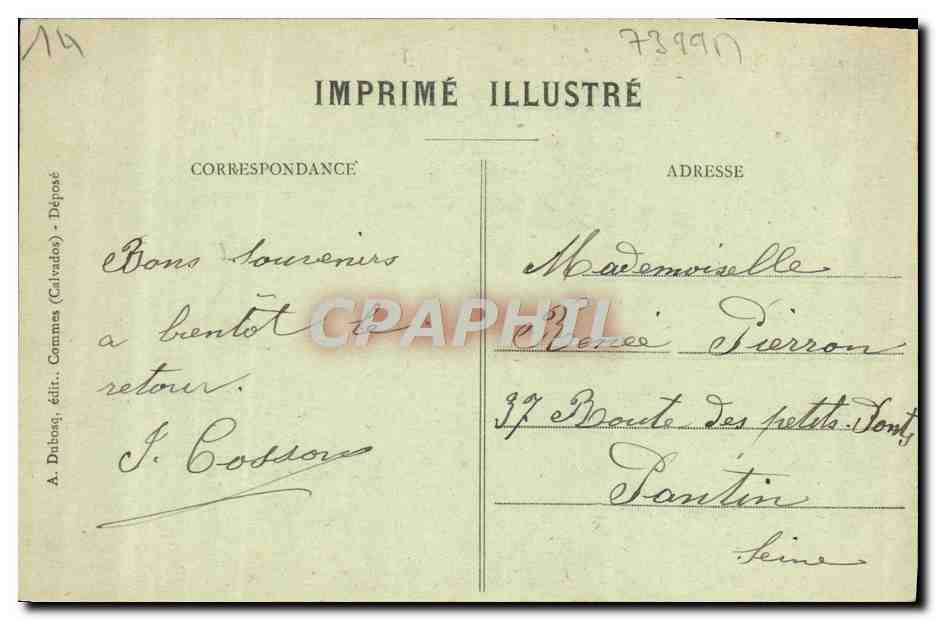 14
73990
IMPRIMÉ ILLUSTRÉ
CORRESPONDANCE
ADRESSE
A. Dubosq, édit., Commes (Calvados) - Déposé
Bons souvenirs
a bientôt le
retour.
J. Cosson
Mademoiselle
Renée Pierron
37 Route des petits-Ponts
Pantin
Seine
CPAPHIL